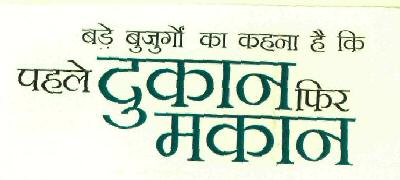 बड़े बुजुर्गों का कहना है कि
पहले दुकान फिर
मकान